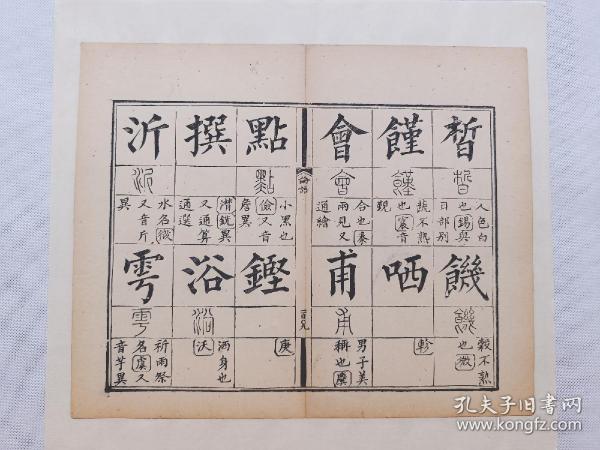 晳
晳
人色白
也錫與
日部别
饉
饉
蔬不熟
也震音
覲
會
會
合也泰
兩見又
通繪
饑
饑
穀不熟
也微
哂
軫
甫
甫
男子美
稱也麌
論語
點
點
小黑也
儉又音
詹異
撰
潸銑異
又通算
通選
沂
沂
水名微
又音斤
異
鏗
庚
浴
浴
洒身也
沃
雩
雩
祈雨祭
名虞又
音芋異
孔夫子旧书网
www.kongfz.com